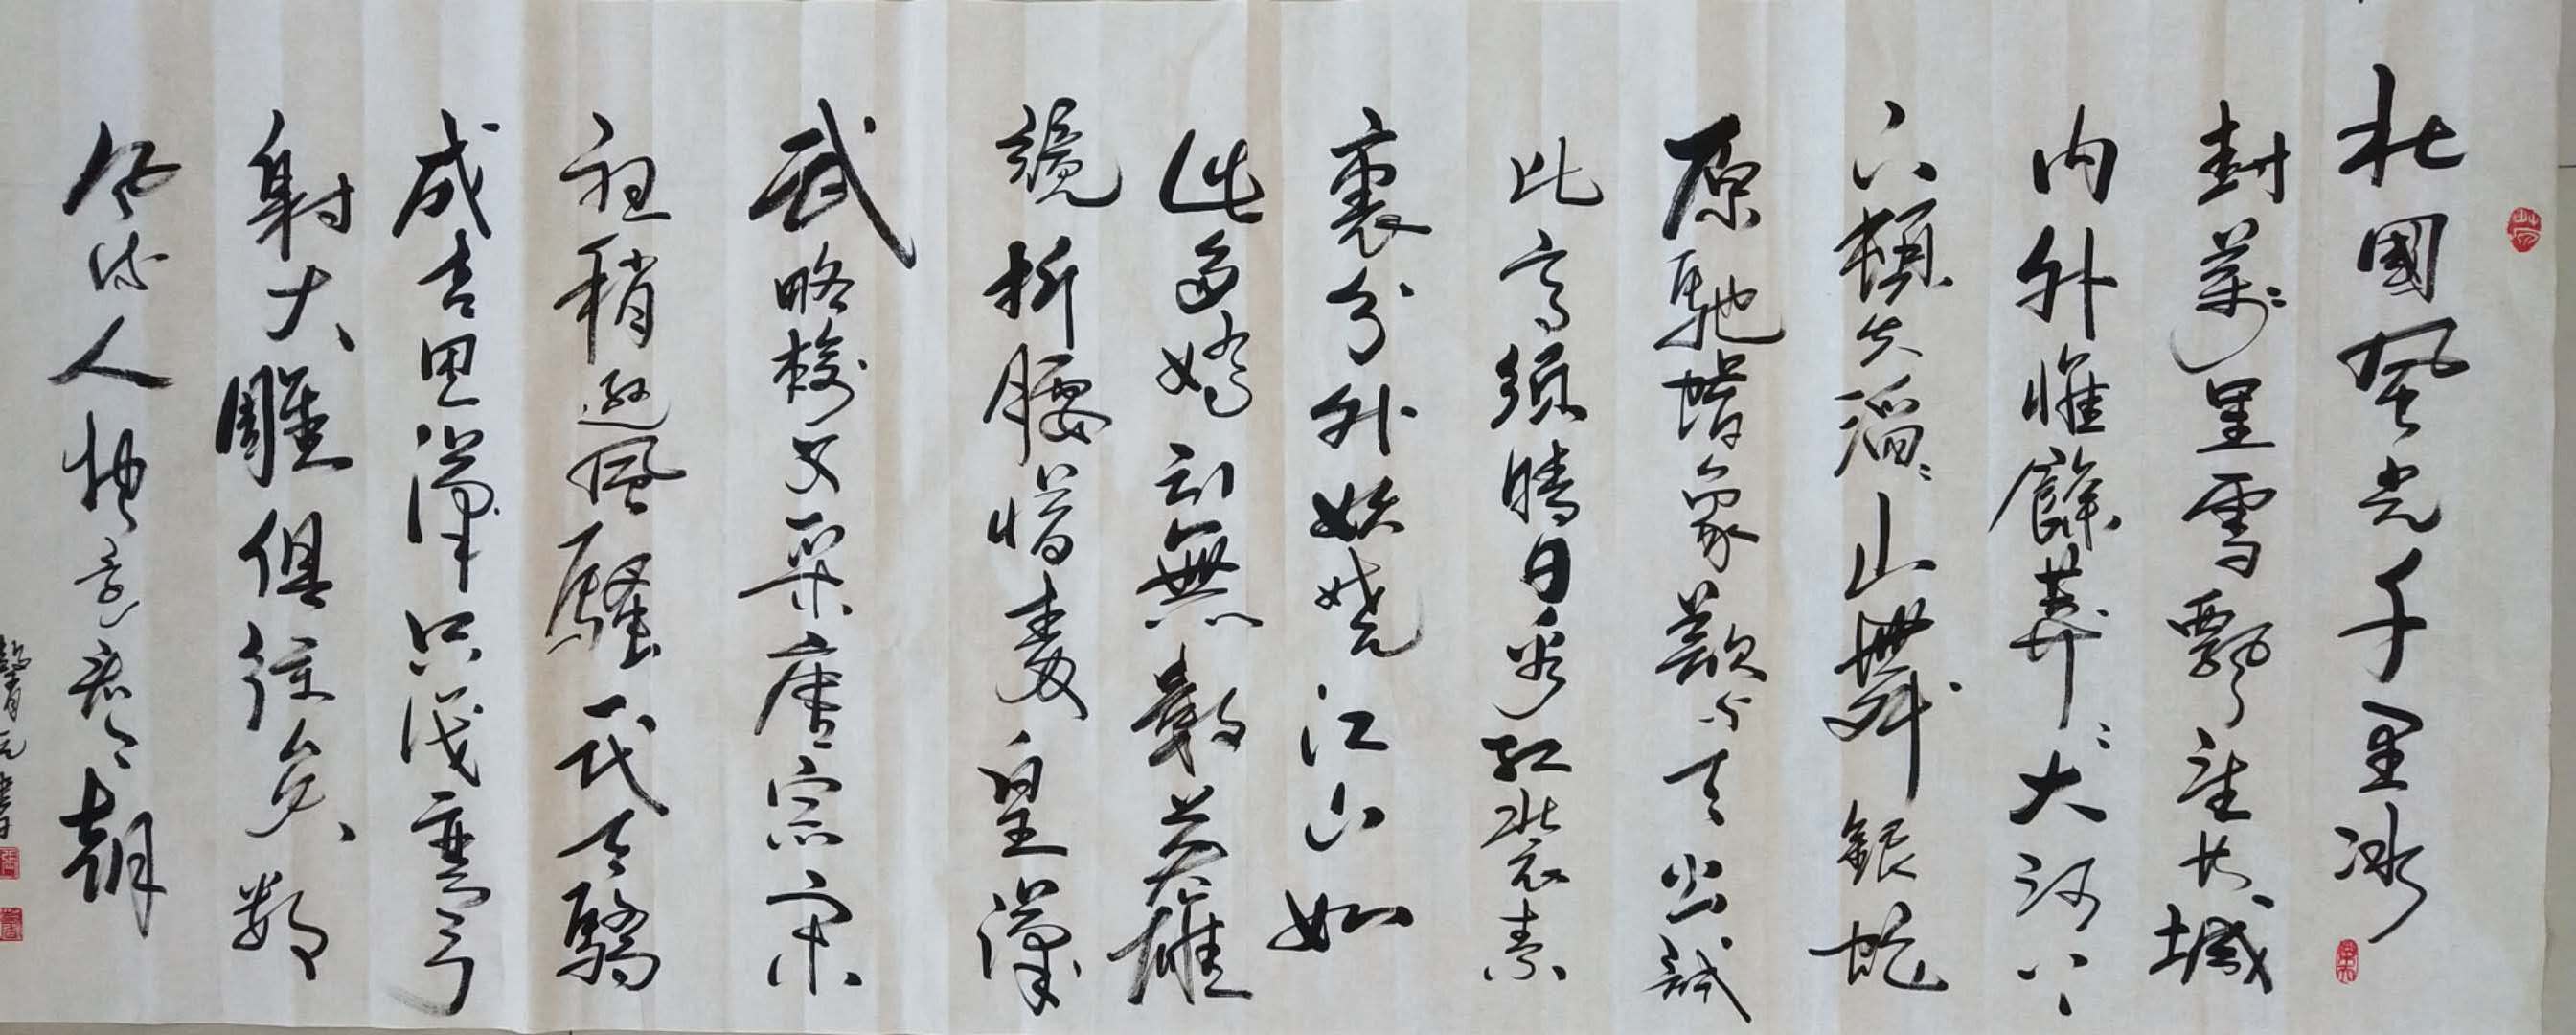 北國風光千里冰
封萬里雪飄望長城
内外惟餘莽〻大河上
下頓失滔〻山舞銀蛇
原馳蠟象欲與天公試
比高須晴日看紅裝素
裹分外妖嬈江山如
此多嬌引無數英雄
競折腰惜秦皇漢
武略輸文采唐宗宋
祖稍遜風騷一代天驕
成吉思漢只識彎弓
射大雕俱往矣數
風流人物還看今朝